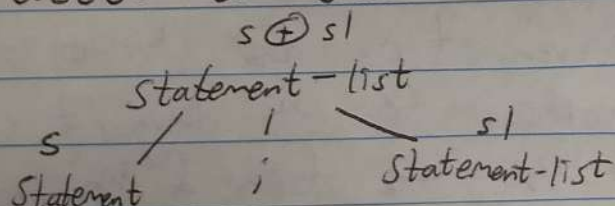 s ⊕ sl
statement-list
s sl
statement ; statement-list